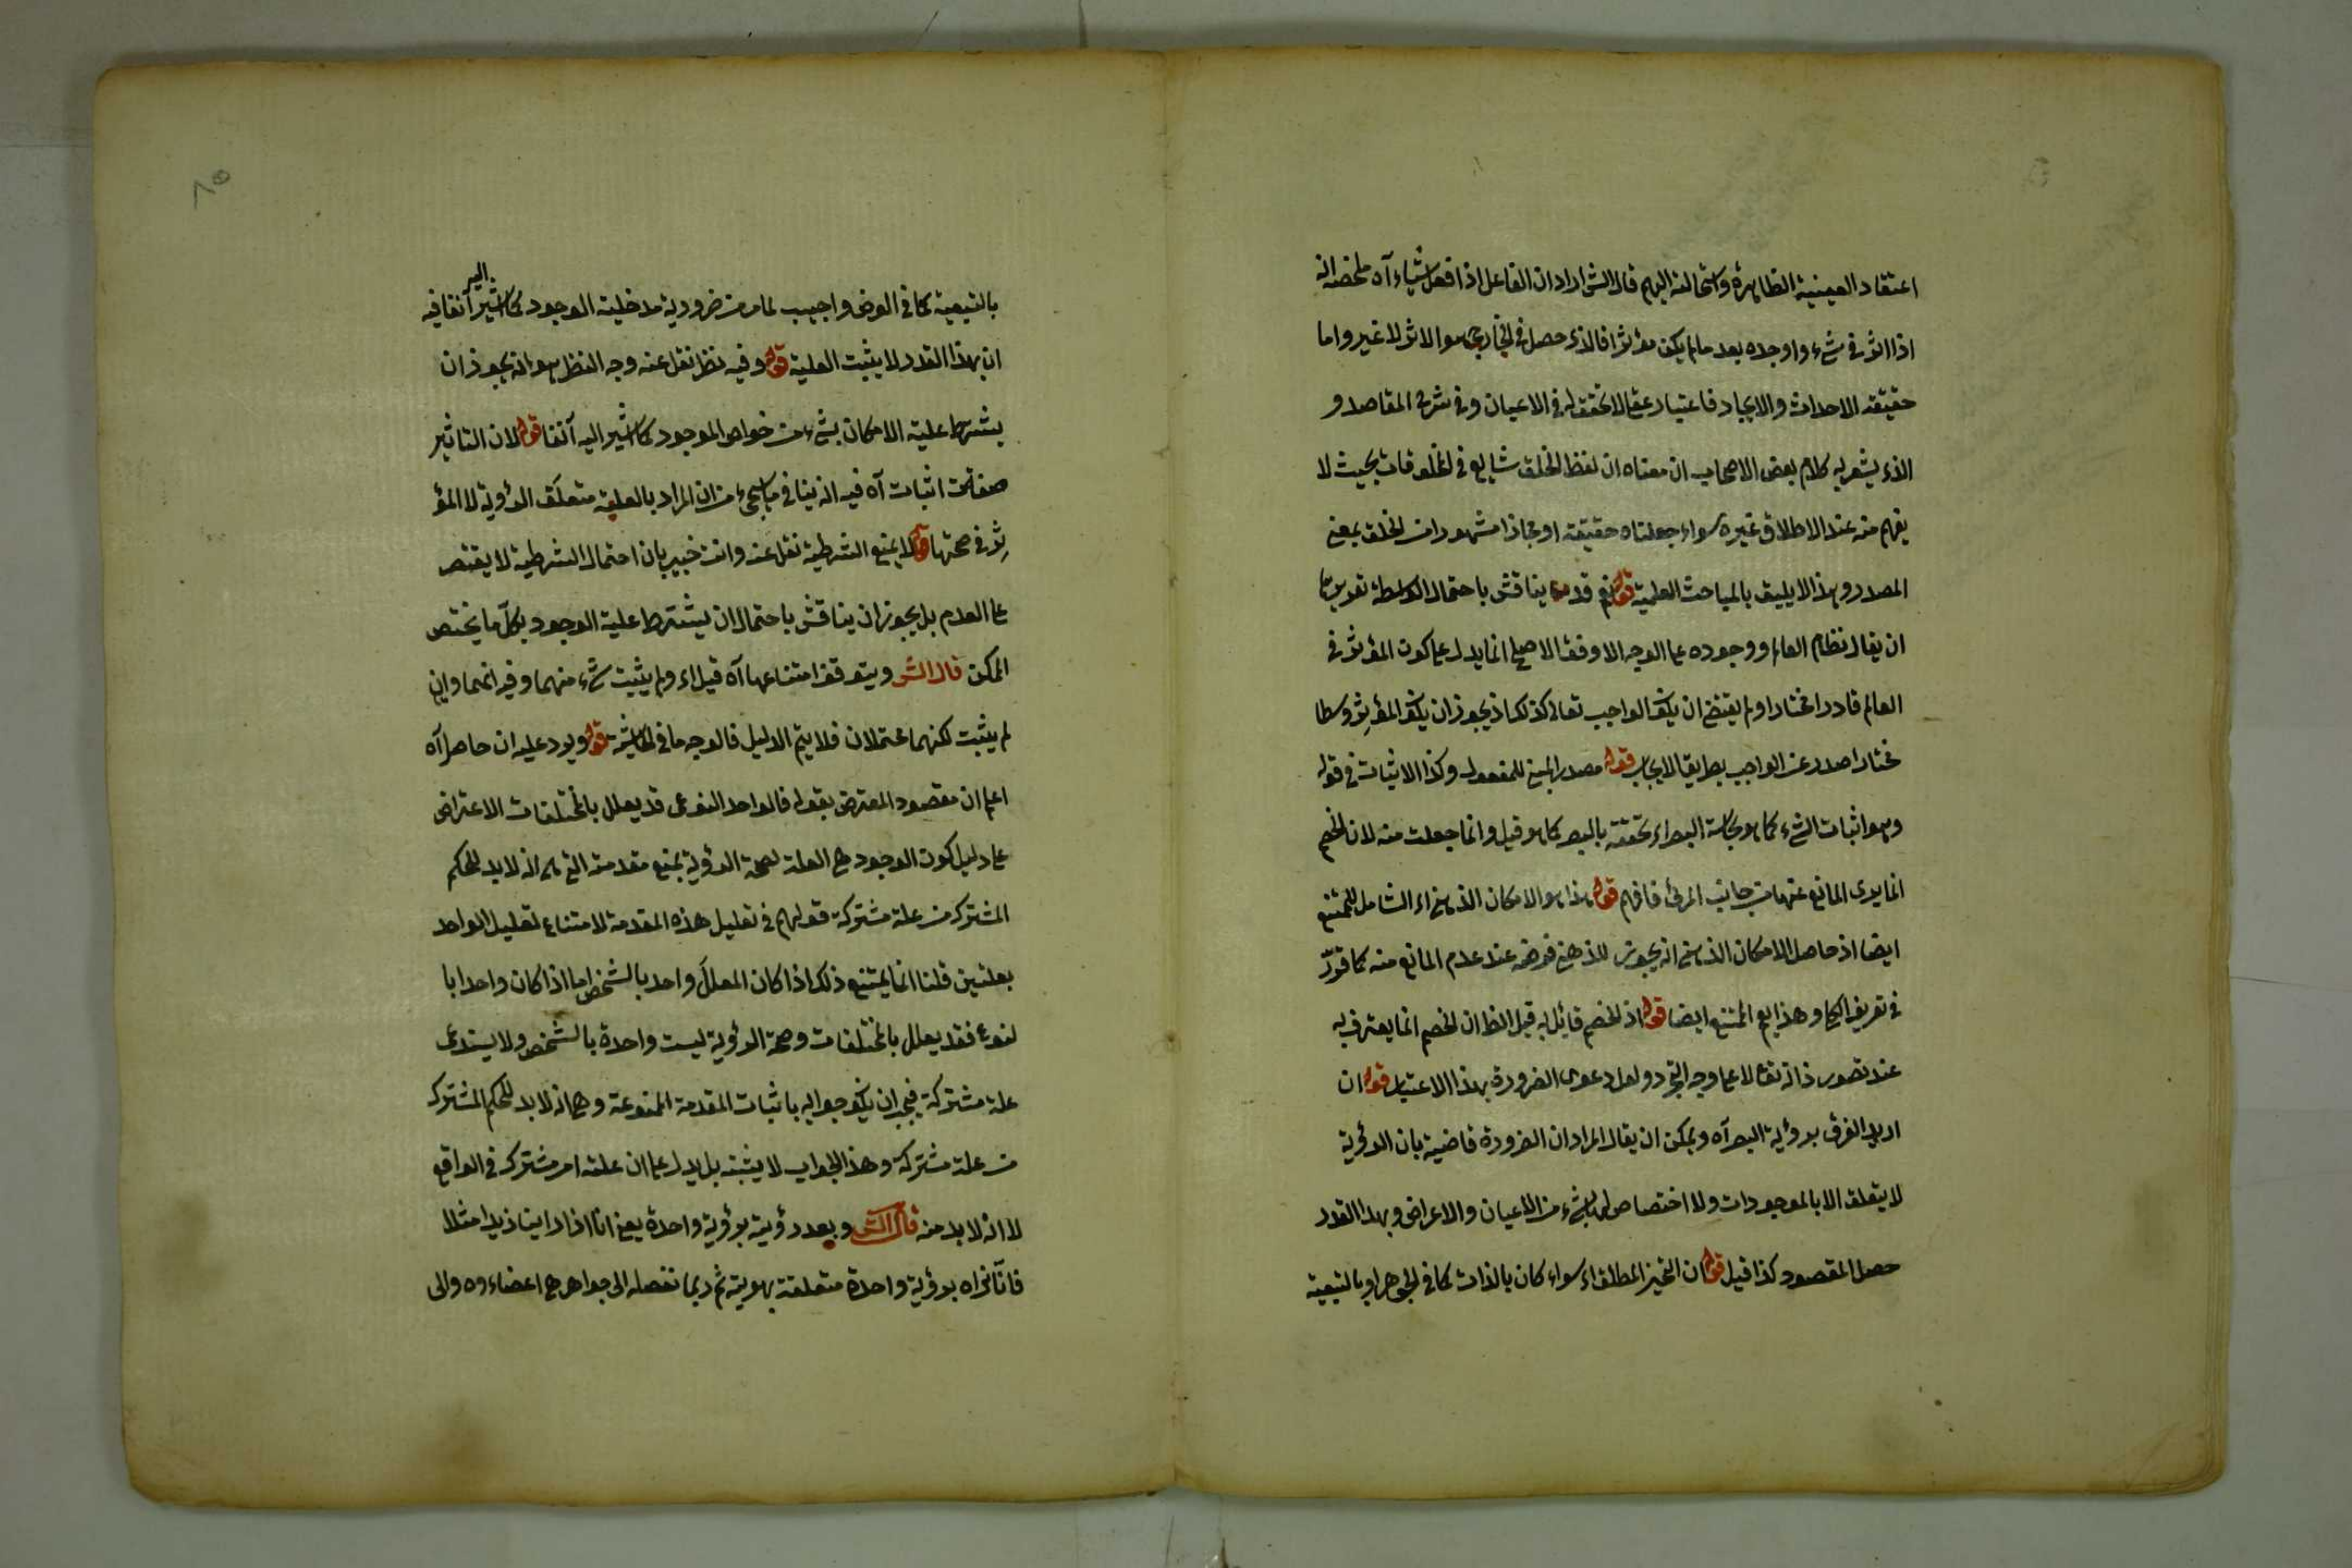 اعتقاد العينية الظاهرة واستحالته اليهم قال الش اراد ان الفاعل اذا فعل شياء آه ملخصه انه
اذا اثر في شئ واوجده بعد مالم يكن مؤثرا فالذى حصل في الخارج هو الاثر لا غير واما
حقيقة الاحداث والايجاد فاعتبار عقلى لا تحقق له في الاعيان وفي شرح المقاصد و
الذى يشعر به كلام بعض الاصحاب ان معناه ان لفظ الخلق شايع في المخلوقات بحيث لا
يفهم منه عند الاطلاق غيره سواء جعلناه حقيقة او مجازا مشهورا من الخلق بمعنى
المصدر وهذا لا يليق بالمباحث العلمية قوله نعم قد يناقش باحتمال الواسطة
ان يقال نظام العالم ووجوده على الوجه الاوفق الاصلح انما يدل على كون المؤثر في
العالم قادرا مختارا ولم يقتض ان يكون الواجب تعالى كذلك اذ يجوز ان يكون المؤثر وسطا
مختارا صدر عن الواجب بطريق الايجاب قوله مصدر المبنى للمفعول وكذا الاثبات في قوله
وهو اثبات الشئ كما هو بحاسة البصر اى تحققه بالبصر كما هو قيل وانما جعلت منه لان الخصم
انما يدعى المانع عنها من جانب المرئى فافهم قوله هذا هو الامكان الذهنى اى الشامل للممتنع
ايضا اذ حاصل الامكان الذهنى انه يجوز الذهن فرضه عند عدم المانع منه كما قرر
في تعريف الكلى وهذا يعم الممتنع ايضا قوله اذ الخصم قائل به قيل الظ ان الخصم انما يعترف به
عند تصور ذاته تعالى لا على وجه التجرد ولعل دعوى الضرورة بهذا الاعتبار قوله ان
اريد الفرق برؤية البصر آه ويمكن ان يقال المراد ان الضرورة قاضية بان الرؤية
لا يتعلق الا بالموجودات ولا اختصاص لها بشئ من الاعيان والاعراض وبهذا القدر
حصل المقصود كذا قيل قوله ان التحيز المطلق اى سواء كان بالذات كما في الجوهر او بالتبعية
٨٥
بالتبعية كما في العرض واجيب لما مر من ضرورية مدخلية الوجود كما اشير اليه آنفا فيه
ان هذا القدر لا يثبت العلية قوله وفيه نظر نقل عنه وجه النظر هو انه يجوز ان
يشترط علية الامكان بشئ من خواص الموجود كما اشير اليه آنفا قوله لان التاثير
صفة اثبات آه فيه انه ينافي ما سيجئ من ان المراد بالعلية متعلق الرؤية لا المؤ
ثر في صحتها قوله لا يمنع الشرطية نقل عنه وانت خبير بان احتمال الشرطية لا يقتص
على العدم بل يجوز ان يناقش باحتمال ان يشترط علية الوجود بكل ما يختص
الممكن قال الش ويتوقف امتناعها آه قيل اى ولم يثبت شئ منهما وفيه انهما وان
لم يثبت لكنهما محتملان فلا يتم الدليل فالوجه ما في الحاشية قوله ويرد عليه ان حاصل آه
اعلم ان مقصود المعترض بقوله فالواحد النوعى قد يعلل بالمختلفات الاعتراض
على دليل كون الوجود هى العلة لصحة الرؤية بمنع مقدمته التى هى انه لا بد للحكم
المشترك من علة مشتركة قولهم في تعليل هذه المقدمة لامتناع تعليل الواحد
بعلتين قلنا انما يمتنع ذلك اذا كان المعلل واحد بالشخص اما اذا كان واحدا با
لنوع فقد يعلل بالمختلفات وصحة الرؤية ليست واحدة بالشخص ولا يستدعى
علة مشتركة فيجب ان يكون جوابه باثبات المقدمة الممنوعة وهى انه لا بد للحكم المشترك
من علة مشتركة وهذا الجواب لا يثبته بل يدل على ان علته امر مشترك في الواقع
لا انه لا بد منه قال الش وبعد رؤيته برؤية واحدة يعنى انا اذا راينا زيدا مثلا
فانا نراه برؤية واحدة متعلقة بهويته ثم ربما نفصله الى جواهر هى اعضاءوه والى